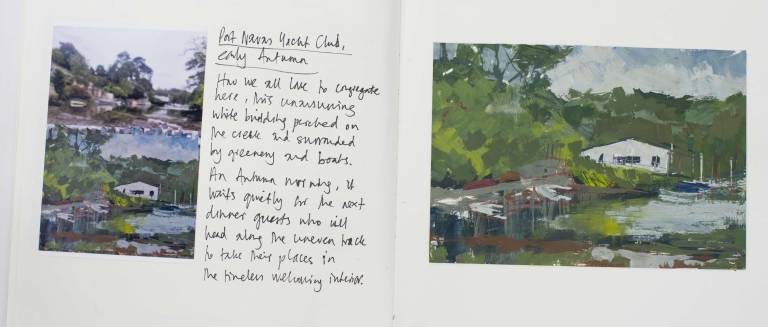 Port Navas Yacht Club,
early Autumn
How we all love to congregate
here, this unassuming
white building perched on
the creek and surrounded
by greenery and boats.
An Autumn morning, it
waits quietly for the next
dinner guests who will
head along the uneven track
to take their places in
the timeless welcoming interior.